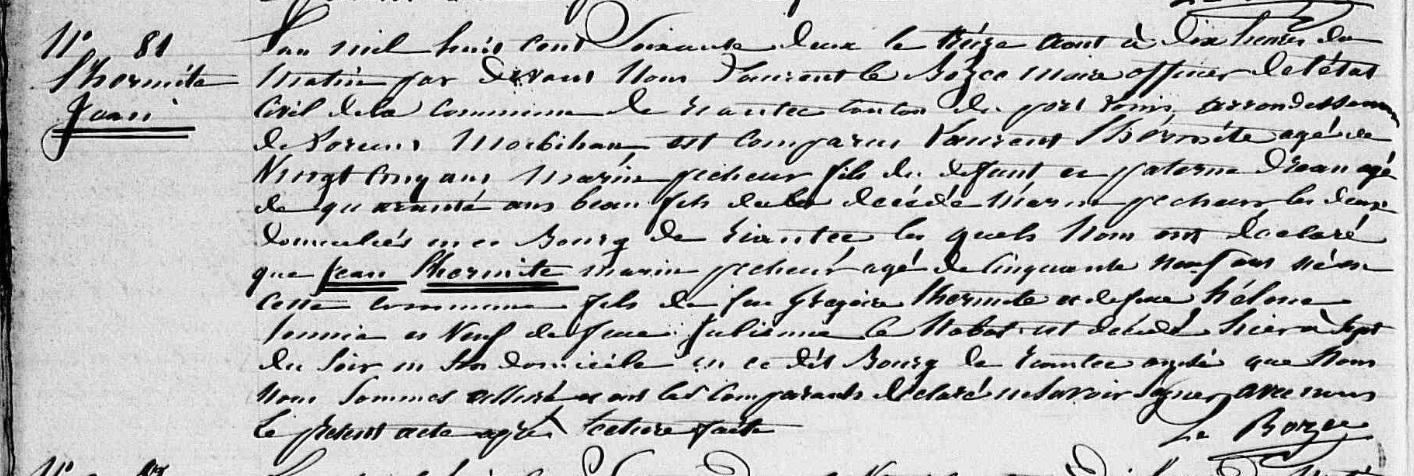 N° 81
Lhermite
Jean
L'an mil huit cent Soixante deux le treize aout à dix heures du
matin par devant Nous Laurent le Bozec maire officier de l'état
Civil de la commune de Riantec canton du port Louis arrondissement
de Lorient Morbihan est comparu Laurent Lhermite agé de
Vingt cinq ans marin pecheur fils du defunt et paterne Drean agé
de quarante ans beau fils du décédé Marin pecheur les deux
domiciliés en ce Bourg de Riantec les quels Nous ont declaré
que Jean Lhermite marin pecheur agé de Cinquante neuf ans né en
cette commune fils de feu Gregoire Lhermite et de feue hélène
et Veuf de feue Julienne le Nabat est decédé hier à sept
du Soir en son domicile en ce dit Bourg de Riantec que Nous
Nous Sommes assuré et ont les Comparants declaré ne savoir signer avec nous
le présent acte après lecture faite
Le Bozec
N°